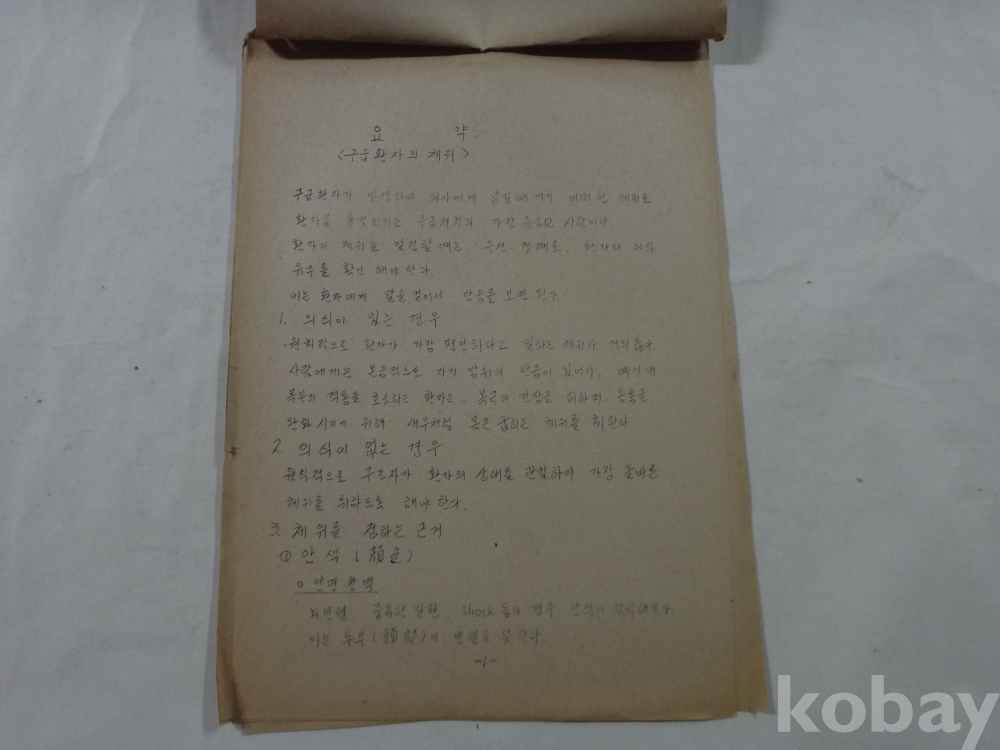 요 약
<구급환자의 체위>
구급환자가 발생하여 의사에게 넘길때까지 어떠한 체위로
환자를 눕힐런지는 구급처치의 가장 중요한 사항이다
환자의 체위를 결정할 때는 우선 첫째로, 환자의 의식
유무를 확인 해야 한다
이는 환자에게 말을 걸어서 반응을 보면 된다.
1. 의식이 있는 경우
원칙적으로 환자가 가장 편안하다고 말하는 체위가 제일좋다
사람에게는 본능적으로 자기 방위의 반응이 있어서, 예컨대
복부의 격통을 호소하는 환자는, 복근의 긴장을 피하며
완화 시키기 위해 새우처럼 몸은 굽히는 체위를 취한다
2. 의식이 없는 경우
원칙적으로 구조자가 환자의 상태를 관찰하여 가장 올바른
체위를 취하도록 해야 한다.
3. 체위를 정하는 근거
① 안색 (顔色)
o 안면창백
뇌빈혈, 중독한 질환, shock 등의 경우 안색이 창백해진다
이는 두부(頭部)의 빈혈로
-1-
kobay